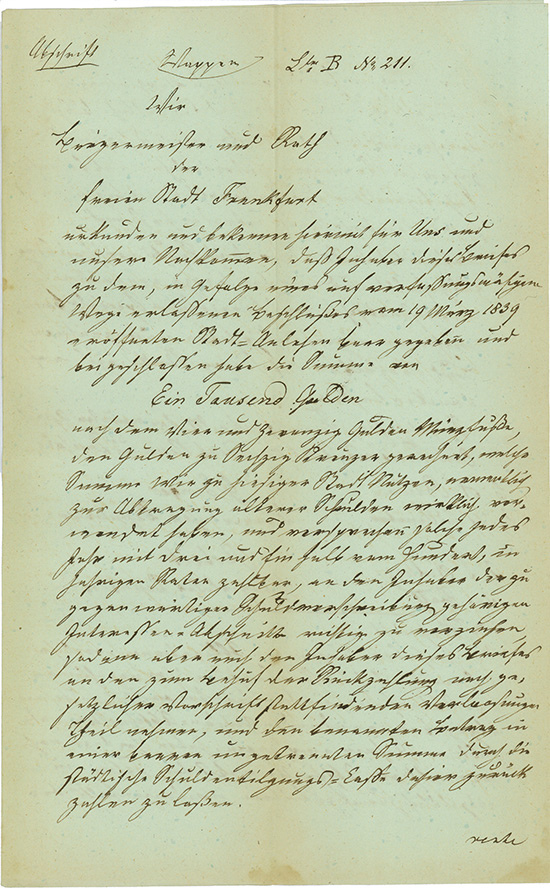 Abschrift
Wappen Ltr B No 211.
Wir
Bürgermeister und Rath
der
freien Stadt Frankfurt
urkunden und bekennen hiermit für Uns und
unsere Nachkommen, daß Inhaber dieses Briefes
zu dem, in Gefolge eines auf verfassungsmäßigem
Wege erlassenen Beschlußes vom 19 März 1839
eröffneten Stadt=Anlehen baar gegeben und
beigeschlossen habe die Summe von
Ein Tausend Gulden
nach dem Vier und Zwanzig Gulden Münzfuße,
den Gulden zu Sechzig Kreuzer gerechnet, welche
Summe wir zu hiesiger Stadt Nutzen, namentlich
zur Abtragung älterer Schulden wirklich ver-
wendet haben, und versprechen solche jedes
Jahr mit drei und Ein halb vom Hundert, in
Jahrigen Raten zahlbar, an den Inhaber der zu
gegenwärtiger Schuldverschreibung gehörigen
Interessen=Abschnitte richtig zu verzinsen,
sodann aber auch den Inhaber dieses Briefes
an den zum Behuf der Rückzahlung nach ge-
setzlicher Vorschrift stattfindenden Verloosungen
Theil nehmen, und den benannten Betrag in
einer baaren ungetrennten Summe durch die
städtische Schuldentilgungs=Casse dahier zurück
zahlen zu laßen.